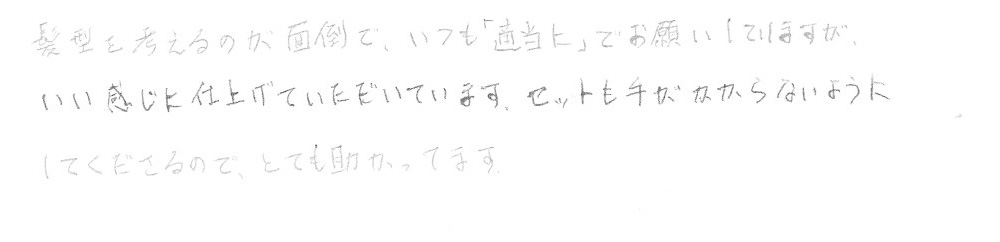 髪型を考えるのが面倒で、いつも「適当に」でお願いしていますが、
いい感じに仕上げていただいています。セットも手がかからないように
してくださるので、とても助かってます。